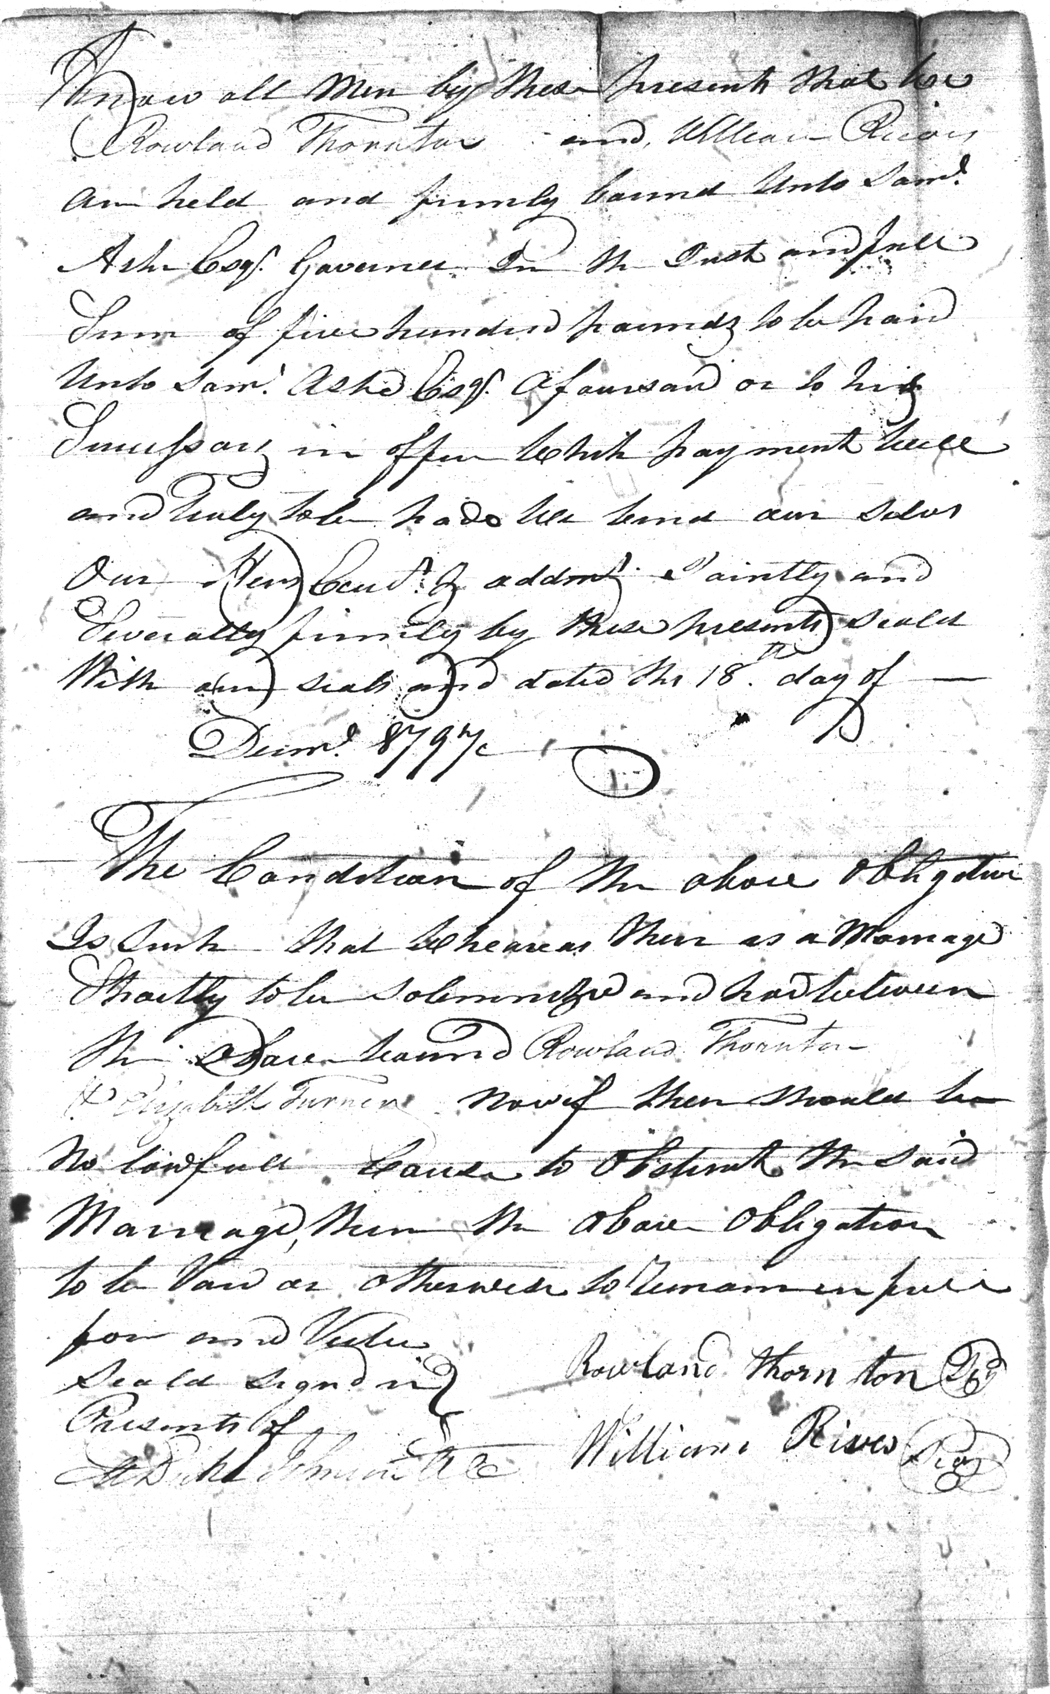 Know all Men by these presents that we
Rowland Thornton and William Rives
are held and firmly bound Unto Saml.
Ashe Esqr. Governer In the Just and full
Sum of five hundred pounds to be paid
Unto Saml. Ashe Esqr. Afoursaid or to his
Successors in office Which payment well
and truly to be made We bind our selves
Our Heirs Executrs. & addmrs. Jointly and
Severally firmly by these presents Seald
With our seals and dated this 18th. day of
Decmr. 1797
The Condition of the above obligation
Is Such that Wheareas there is a Marriage
Shortly to be solemnized and had between
the above bound Rowland Thornton
& Elizabeth Turner Now if there should be
No lawfull Cause to Obstruct the said
Marriage, then the above Obligation
to be Void or otherwise to Remain in full
forc and Vertue
Seald Signd in
Presents of
Rowland thornton
William Rives
Johnson